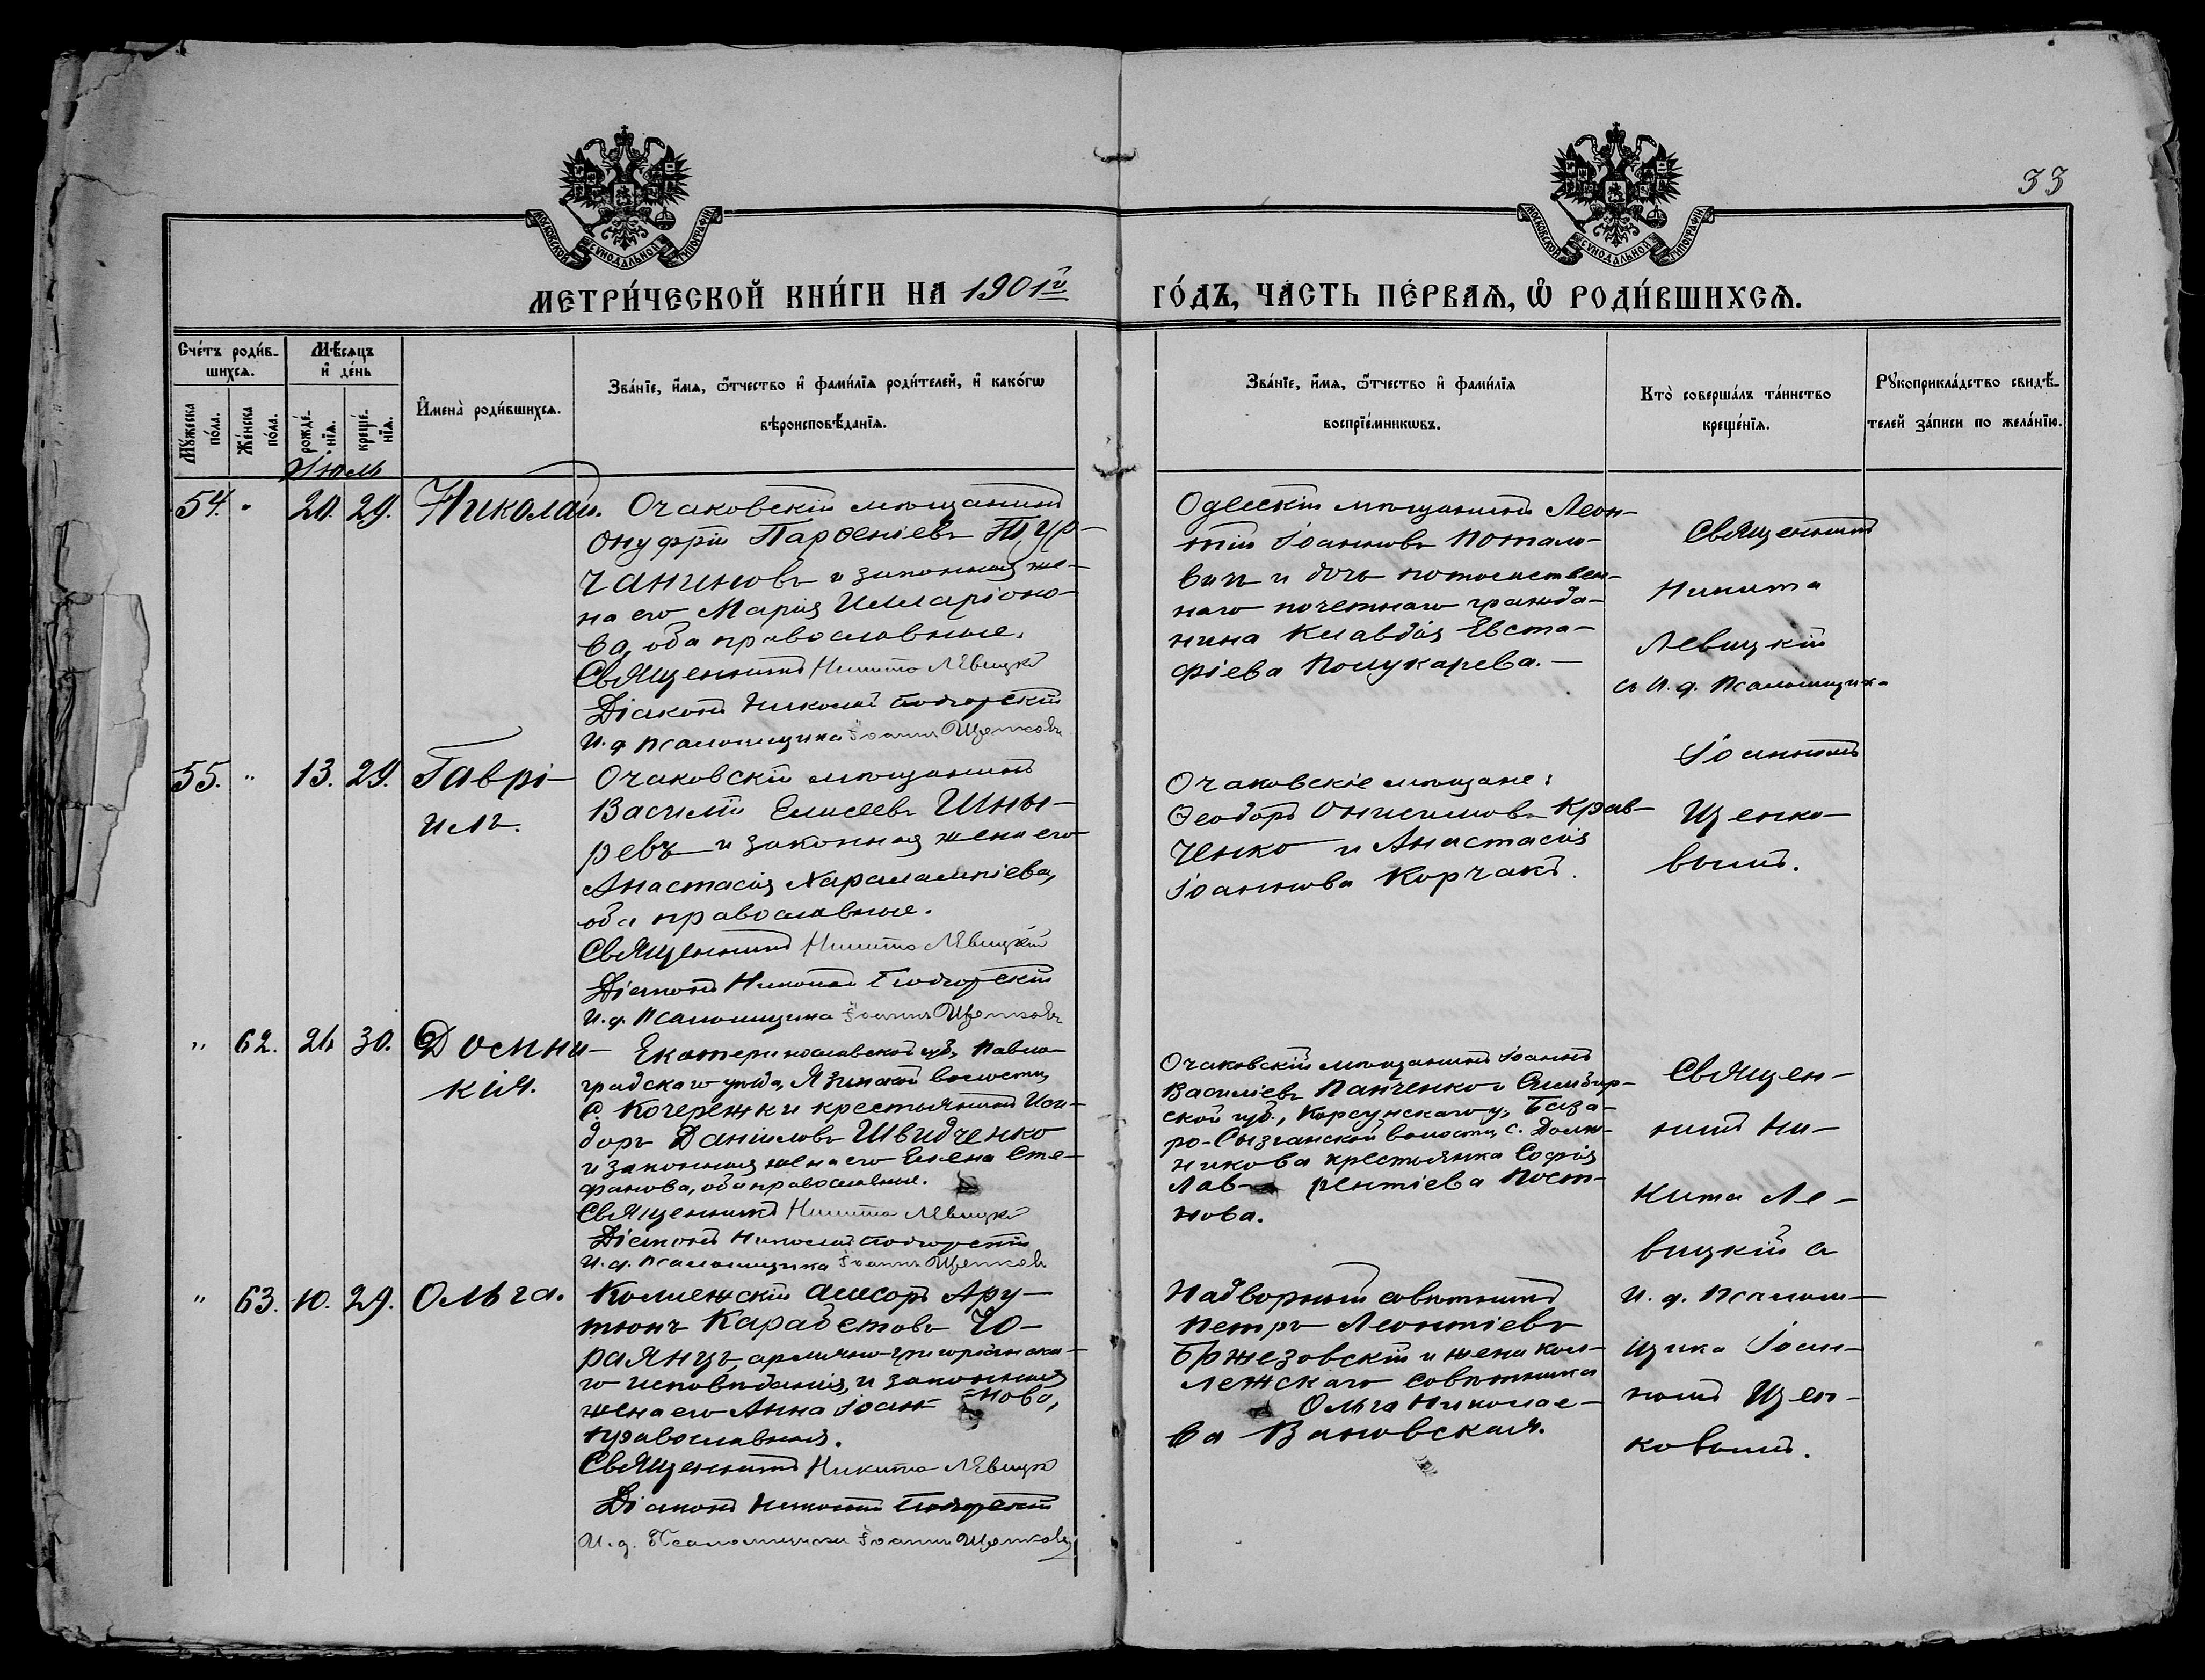 33
МОСКОВСКОЙ СѴНОДАЛЬНОЙ ТИПОГРАФІИ
МОСКОВСКОЙ СѴНОДАЛЬНОЙ ТИПОГРАФІИ
МЕТРИ́ЧЕСКОЙ КНИ́ГИ НА 1901й ГО́ДЪ, ЧА́СТЬ ПЕ́РВАѦ, Ѡ҆ РОДИ́ВШИХСѦ.
Сче́тъ роди́в-
шихсѧ.
Мꙋ́жеска
по́ла.
Же́нска
по́ла.
Мѣ́сѧцъ
и҆ де́нь
рожде́-
нїѧ.
креще́-
нїѧ.
И҆мена̀ роди́вшихсѧ.
Зва́нїе, и҆́мѧ, ѻ҆́тчество и҆ фамилїѧ роди́телей, и҆ како́гѡ
вѣроисповѣ́данїѧ.
Зва́нїе, и҆́мѧ, ѻ҆́тчество и҆ фами́лїѧ
воспрїе́мникѡвъ.
Кто̀ соверша́лъ та́инство
креще́нїѧ.
Рꙋкоприкла́дство свидѣ́-
телей за́писи по жела́нїю.
Іюль
54. " 20. 29. Николай.
Очаковскій мѣщанинъ
Онуфрій Парѳеніевъ Тур-
чаниновъ и законная же-
на его Марія Илларіоно-
ва, оба православные.
Священникъ Никита Левицкій
Діаконъ Николай Подгорскій
И. д. Псаломщика Іоаннъ Щепковъ
Одесскій мѣщанинъ Леон-
тій Іоанновъ
и дочь потомствен-
наго почетнаго гражда-
нина Клавдія Евста-
фіева Полукарева. —
Священникъ
Никита
Левицкій
съ И. д. Псаломщик-
Іоанномъ
Щепко-
вымъ.
55. " 13. 29. Гаврі-
илъ.
Очаковскій мѣщанинъ
Василій Елисеевъ Шны-
ревъ и законная жена его
Анастасія Харалампіева,
оба православные.
Священникъ Никита Левицкій
Діаконъ Николай Подгорскій
И. д. Псаломщика Іоаннъ Щепковъ
Очаковскіе мѣщане:
Ѳеодоръ Онисимовъ Крав-
ченко и Анастасія
Іоаннова Корчакъ.
" 62. 26 30. Домни-
кія.
Екатеринославской губ, Павло-
градскаго уѣзда, волости,
с. Кочережки крестьянинъ Иси-
доръ Даніиловъ Швидченко
и законная жена его Елена Сте-
фанова, оба православные.
Священникъ Никита Левицкій
Діаконъ Николай Подгорскій
И. д. Псаломщика Іоаннъ Щепковъ
Очаковскій мѣщанинъ Іоаннъ
Василіевъ Панченко и Симбир-
ской губ., Корсунскаго у, База-
ро-Сызганской волости, с.
никова крестьянка Софія
Лав- рентіева Пост-
нова.
Священ-
никъ Ни-
кита Ле-
вицкій съ
И. д. Псалом-
щика Іоан-
номъ Щеп-
ковымъ.
" 63. 10. 29. Ольга.
Коллежскій асессоръ Ару-
тюнъ Карабетовъ Чо-
раянцъ, армяно-григоріанска-
го исповѣданія, и законная
жена его Анна Іоан- нова,
православная.
Священникъ Никита Левицкій
Діаконъ Николай Подгорскій
И. д. Псаломщика Іоаннъ Щепковъ
Надворный совѣтникъ
Петръ Леонтіевъ
Бржезовскій и жена кол-
лежскаго совѣтника
Ольга Николае-
ва Вановская.